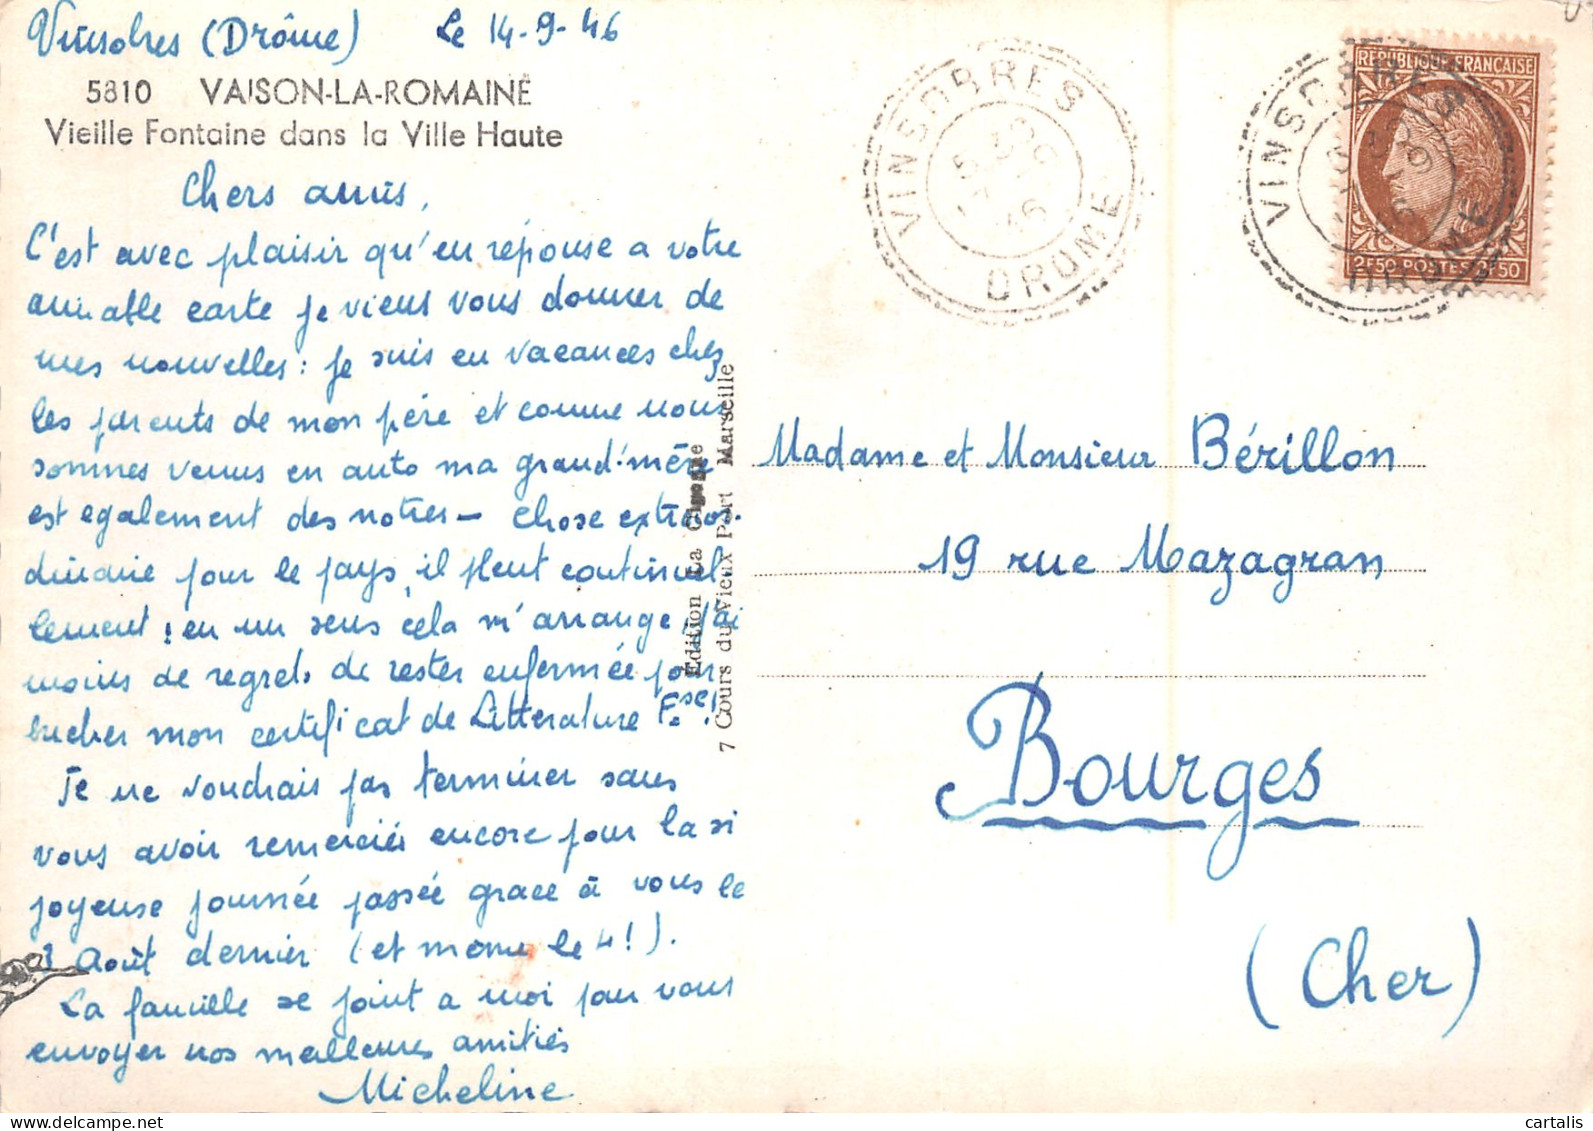 Vinsobres (Drôme) Le 14-9-46
5810 VAISON-LA-ROMAINE
Vieille Fontaine dans la Ville Haute
Chers amis,
C'est avec plaisir qu'en réponse a votre
aimable carte je viens vous donner de
mes nouvelles : je suis en vacances chez
les parents de mon père et comme nous
sommes venus en auto ma grand'mère
est egalement des notres — chose extraor-
dinaire pour le pays, il pleut continuel
lement ; en un sens cela m'arrange, j'ai
moins de regrets de rester enfermée pour
bucher mon certificat de Litterature Fse!
Je ne voudrais pas terminer sans
vous avoir remerciés encore pour la si
joyeuse journée passée grace à vous le
3 Août dernier (et même le 4!).
La famille se joint a moi pour vous
envoyer nos meilleures amitiés
Micheline
Edition La
7 Cours du Vieux Port Marseille
VINSOBRES
DROME
VINSOBRES
DROME
REPUBLIQUE FRANÇAISE
2F50 POSTES 2F50
Madame et Monsieur Bérillon
19 rue Mazagran
Bourges
(Cher)
cartalis
www.delcampe.net